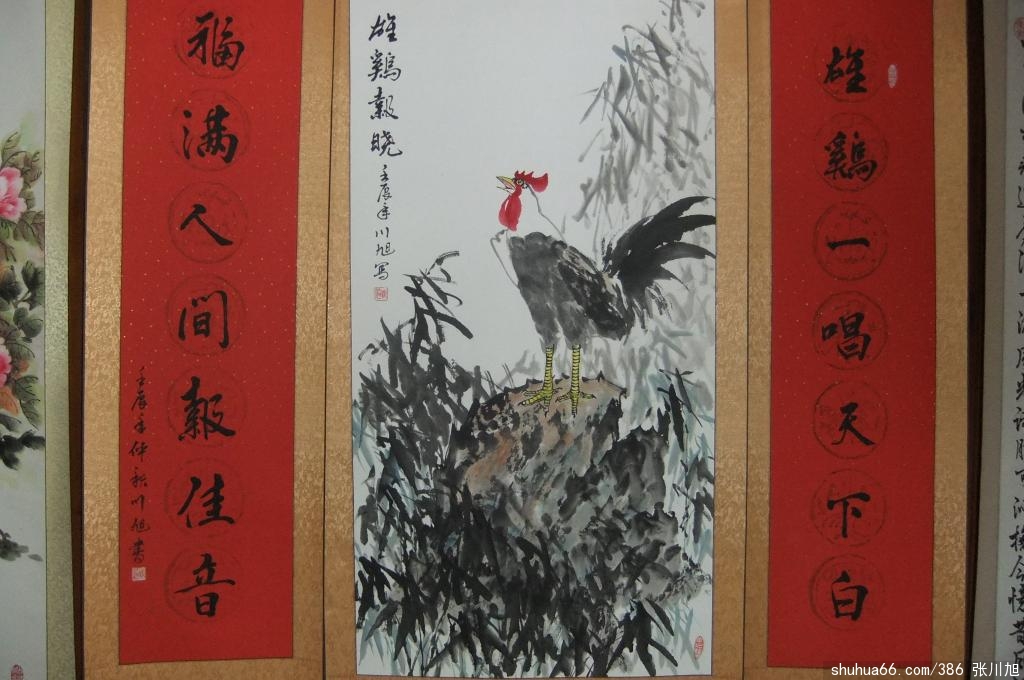 雄鷄一唱天下白
雄鷄報晓
壬辰年川旭写
福满人間報佳音
壬辰年仲秋川旭書
shuhua66.com/386 张川旭